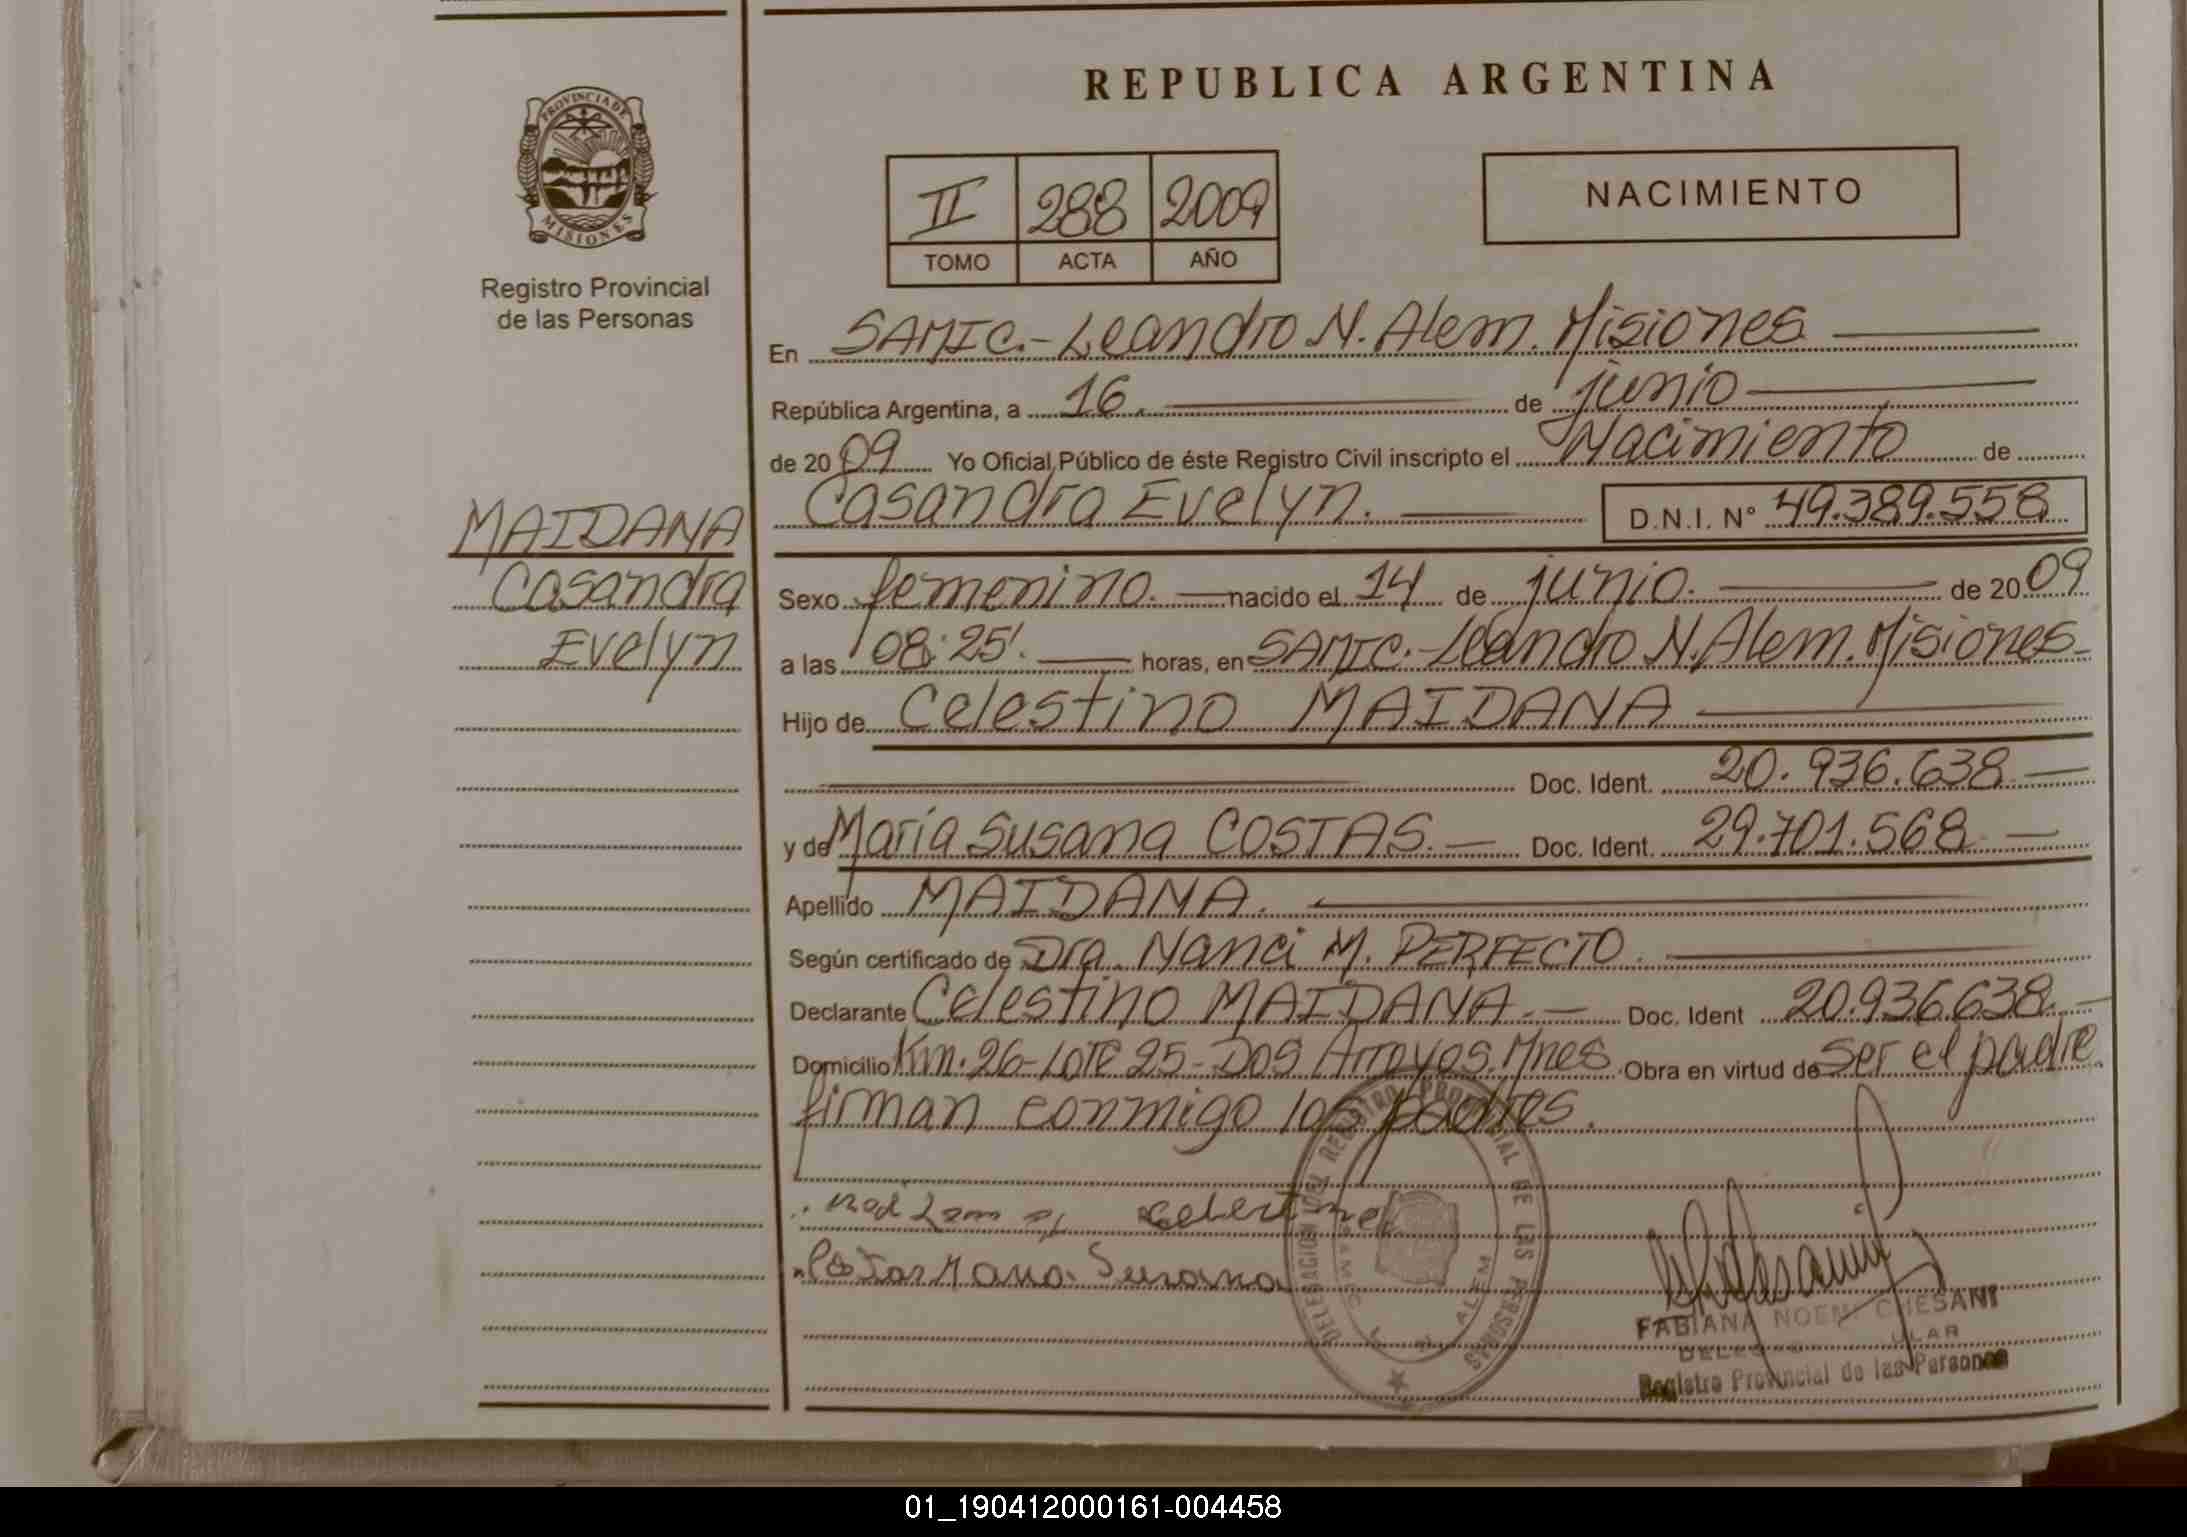 REPUBLICA ARGENTINA
PROVINCIA DE MISIONES
Registro Provincial
de las Personas
II 288 2009
TOMO ACTA AÑO
NACIMIENTO
En SAMIC.-Leandro N. Alem. Misiones
República Argentina, a 16. de junio
de 2009 Yo Oficial Público de éste Registro Civil inscripto el Nacimiento de
Casandra Evelyn. D.N.I. N° 49.389.558
MAIDANA
Casandra
Evelyn
Sexo femenino. nacido el 14 de junio. de 2009
a las 08:25'. horas, en SAMIC.-Leandro N. Alem. Misiones
Hijo de Celestino MAIDANA
Doc. Ident. 20.936.638
y de María Susana COSTAS. Doc. Ident. 29.701.568
Apellido MAIDANA.
Según certificado de Dra. Nanci M. PERFECTO.
Declarante Celestino MAIDANA. Doc. Ident 20.936.638
Domicilio Km. 26-LOTE 25-Dos Arroyos. Mnes. Obra en virtud de ser el padre
firman conmigo los padres.
celestino
Costas Maria Susana
DELEGACION DEL REGISTRO PROVINCIAL DE LAS PERSONAS
SAMIC L. N. ALEM
FABIANA NOEMI CHESANI
Registro Provincial de las Personas
01_190412000161-004458